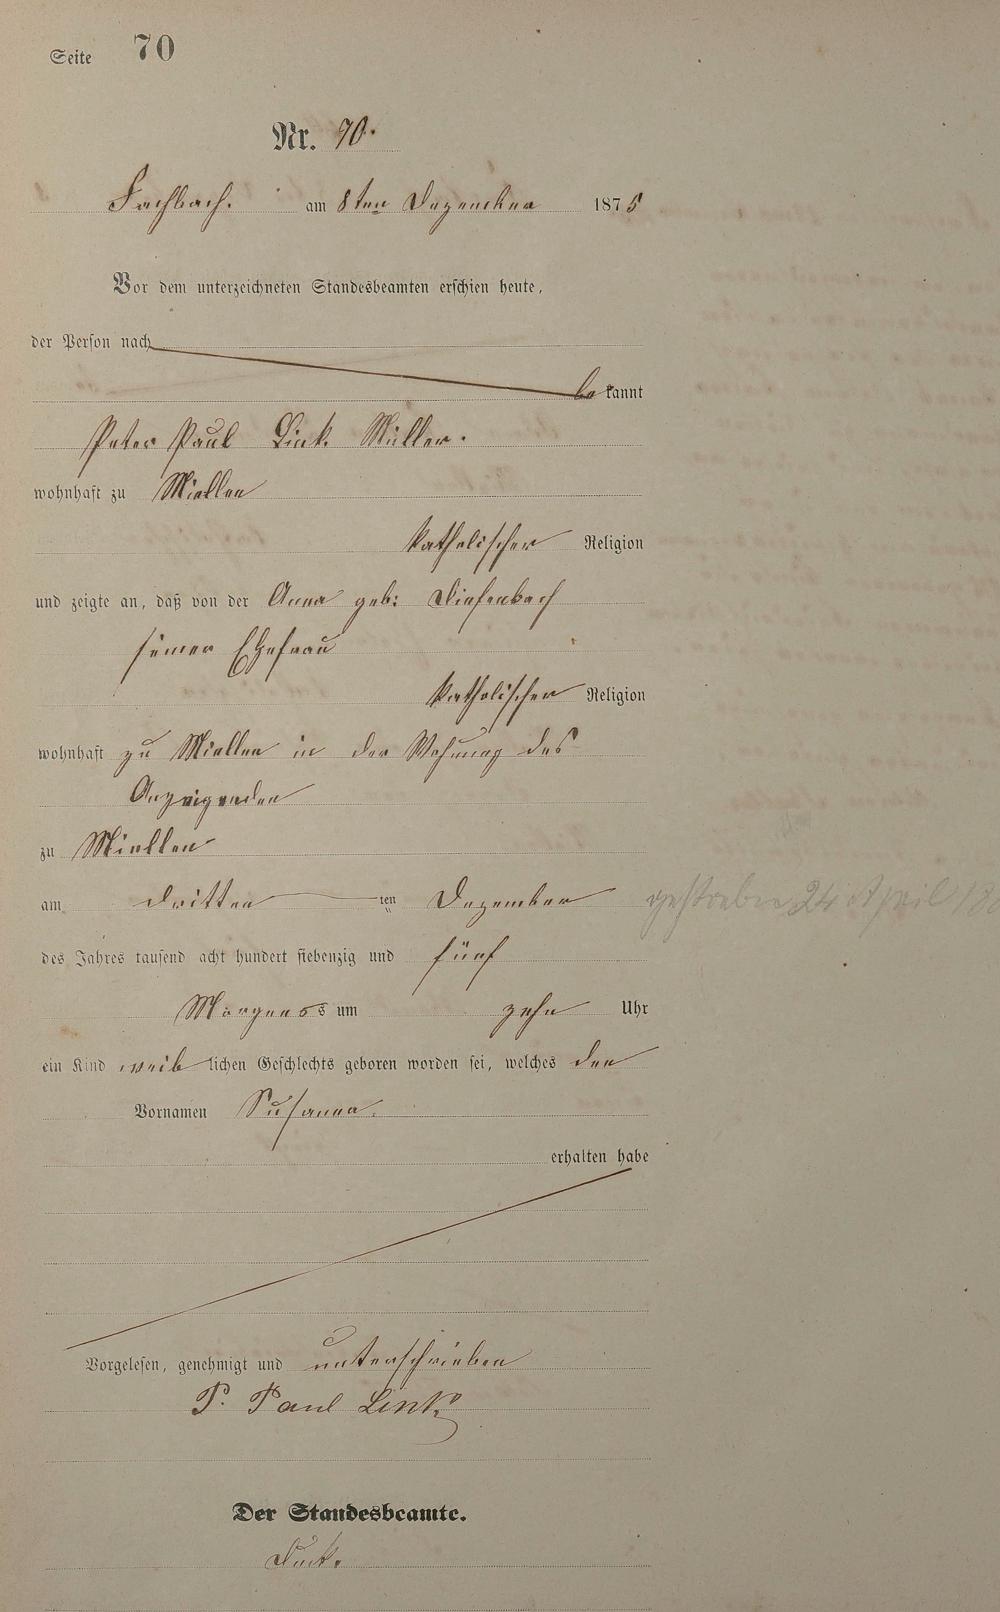 Seite 70
Nr. 70.
Fachbach. am 8ten Dezember 1875
Vor dem unterzeichneten Standesbeamten erschien heute,
der Person nach
bekannt
Peter Paul Link. Müller.
wohnhaft zu Miellen
katholischer Religion
und zeigte an, daß von der Anna geb: Diefenbach
seiner Ehefrau
katholischer Religion
wohnhaft zu Miellen in der Wohnung des
Anzeigenden
zu Miellen
am dritten ten Dezember
gestorben 24 April
des Jahres tausend acht hundert siebenzig und fünf
Morgens um zehn Uhr
ein Kind weiblichen Geschlechts geboren worden sei, welches den
Vornamen Susanna.
erhalten habe
Vorgelesen, genehmigt und unterschrieben
P. Paul Link
Der Standesbeamte.